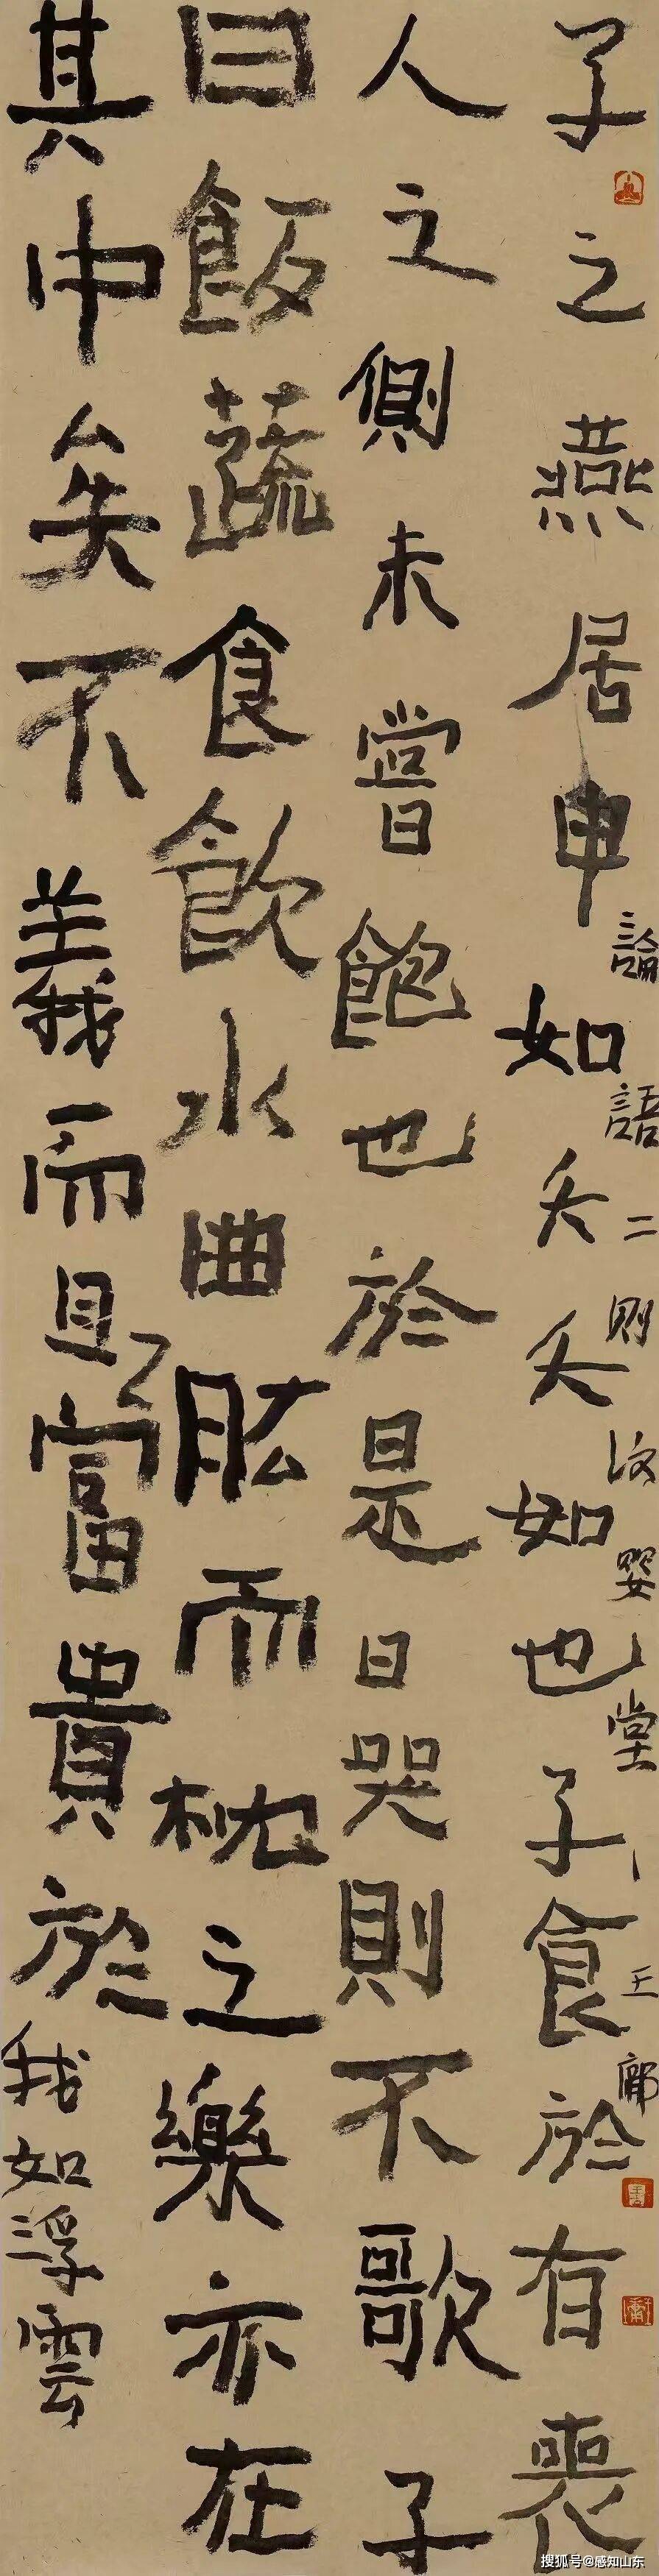 子之燕居申如夭夭如也子食於有喪
人之側未嘗飽也於是日哭則不歌子
曰飯蔬食飲水曲肱而枕之樂亦在
其中矣不義而且富貴於我如浮雲
論語二則 堂 王
搜狐号@感知山东